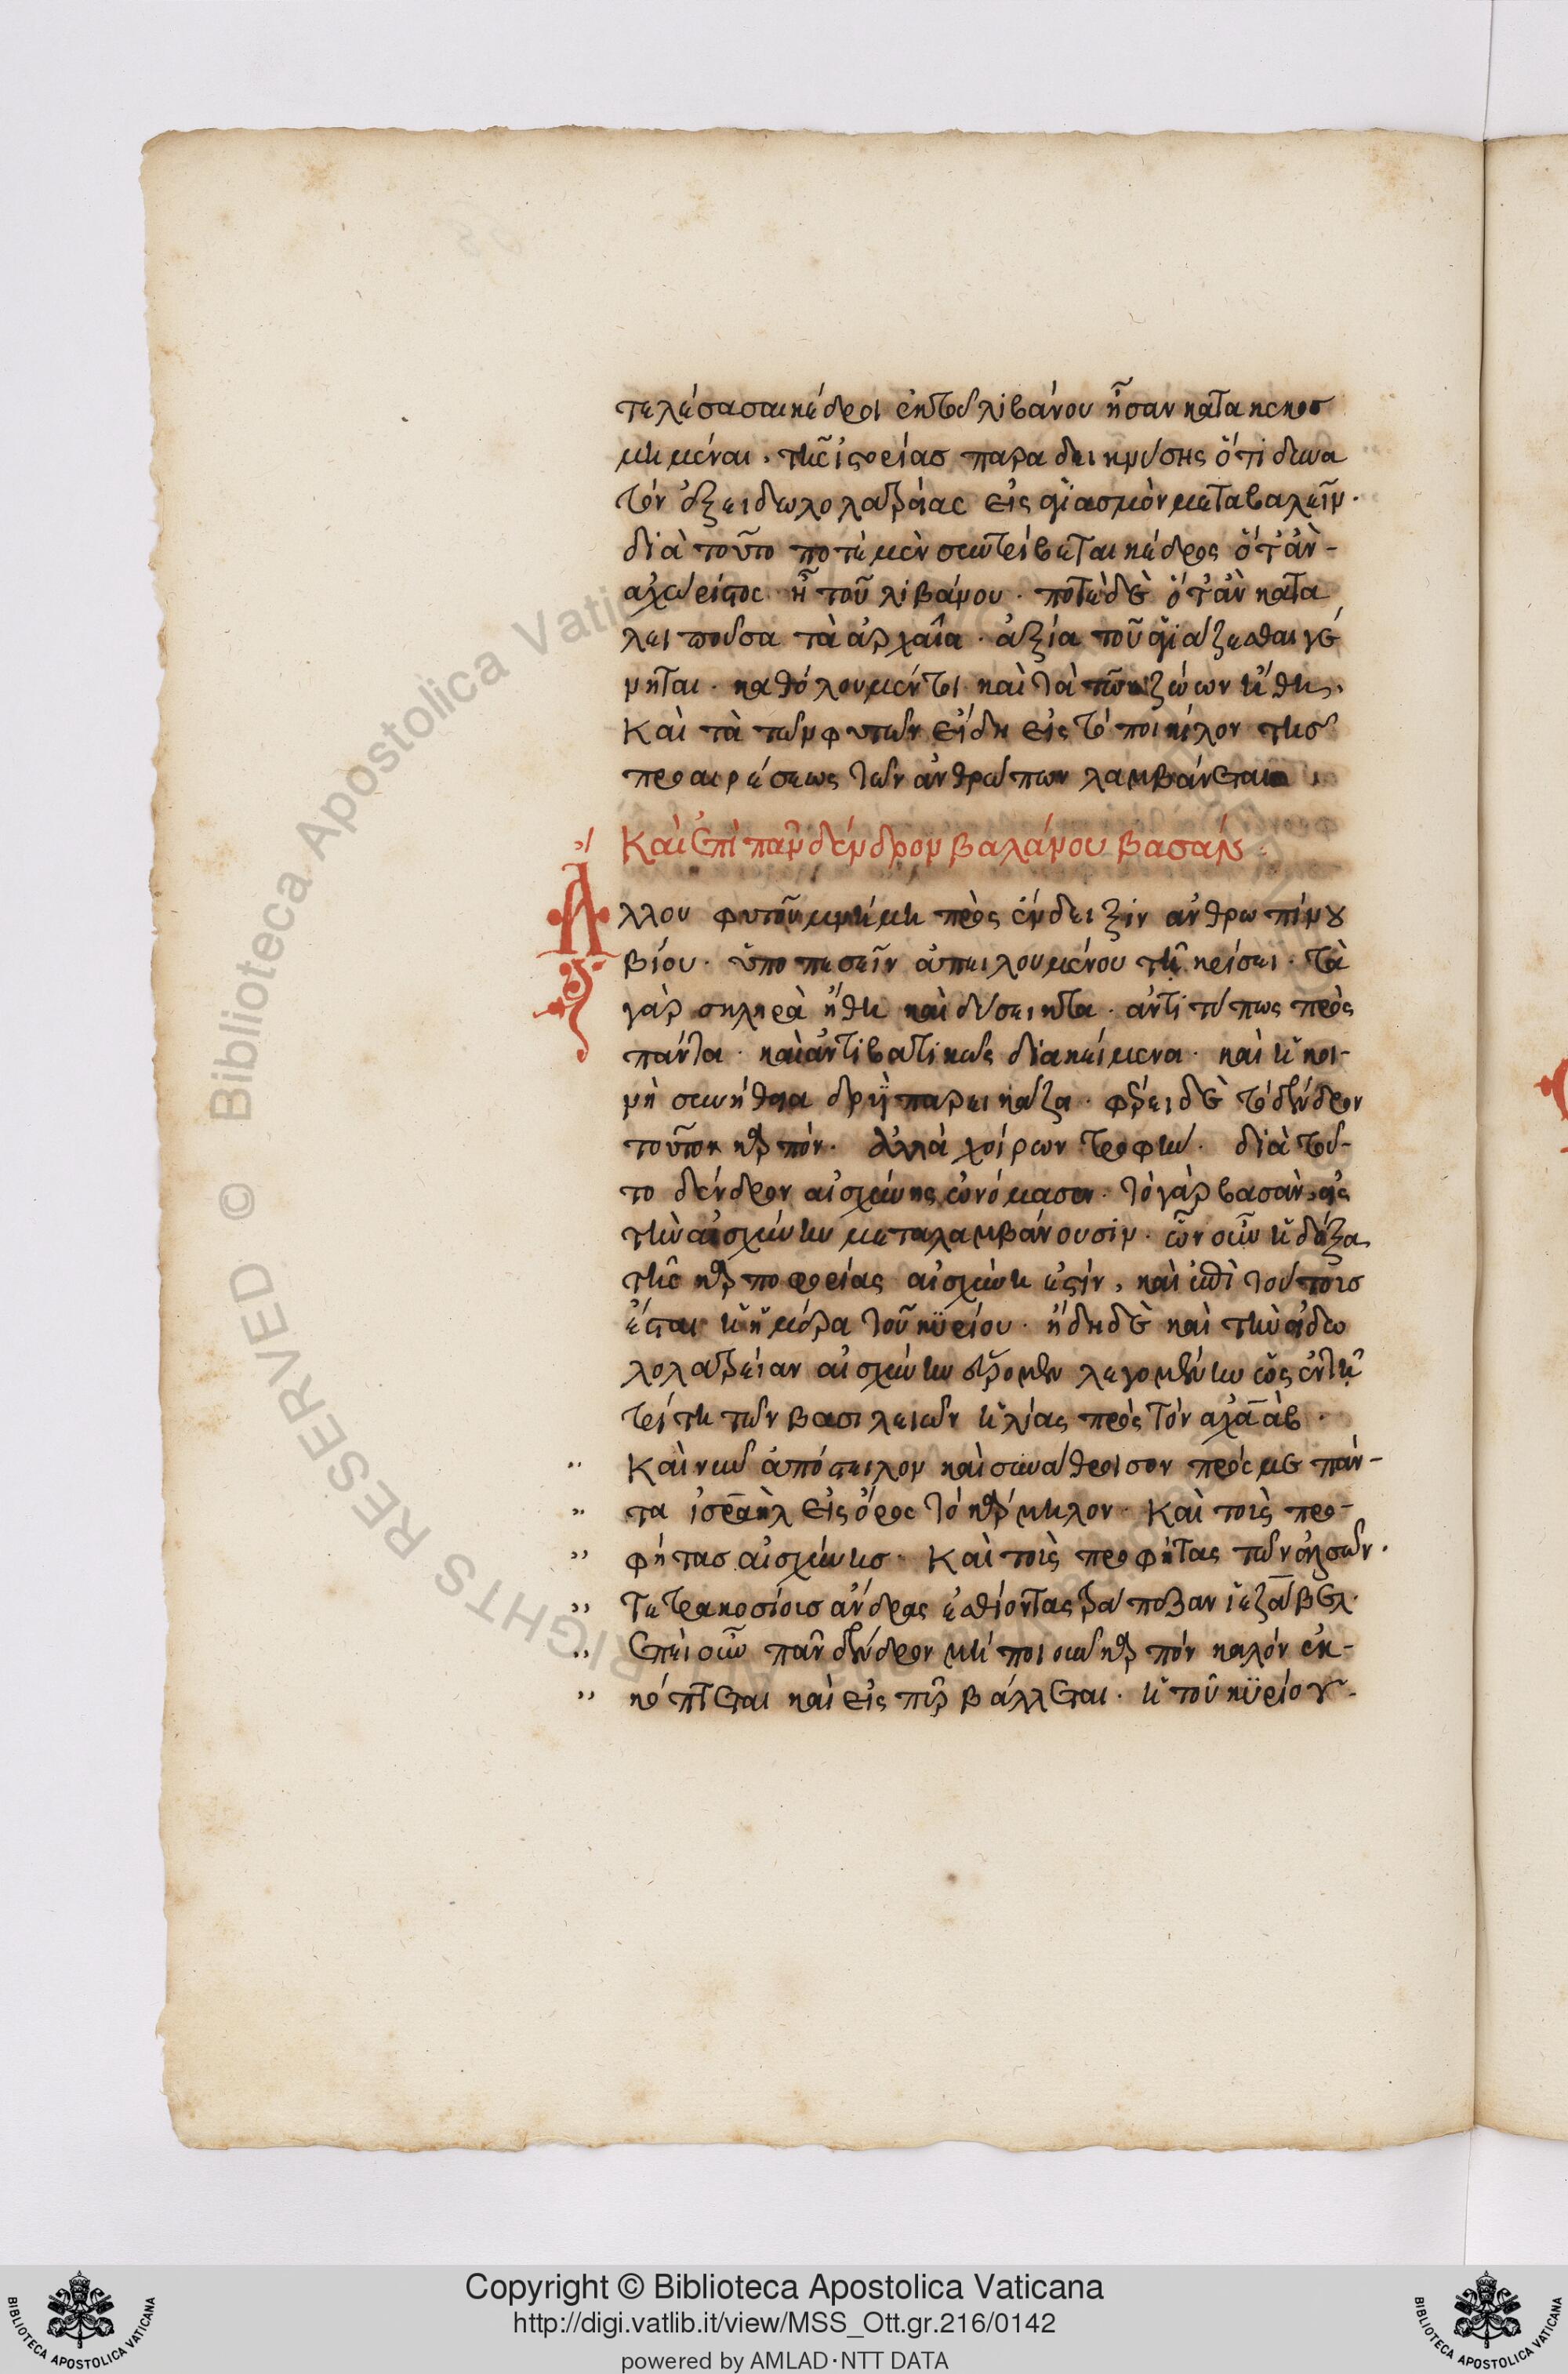 τελέσασαι κέδροι ἐκ τοῦ λιβάνου ἦσαν κατακεκοσ
μημέναι. τῆς ἱστορίας παραδεικνυσης ὅτι δυνα
τὸν ἐξ εἰδωλολατρείας εἰς ἁγιασμὸν μεταβαλεῖν.
διὰ τοῦτο ποτὲ μὲν συντρίβεται κέδρος ὅτ' ἀν-
αχώριστος ἦ τοῦ λιβάνου. ποτὲ δὲ ὅτ' ἀν κατα
λειποῦσα τὰ ἀρχαῖα. ἀξία τοῦ ἁγιάζεσθαι γέ
νηται. καθόλου μέντοι καὶ τὰ τῶν ζώων ἤθη,
Καὶ τὰ τῶν φυτῶν εἴδη εἰς τὸ ποικίλον τῆσ
προαιρέσεως τῶν ἀνθρώπων λαμβάνεται.
Καὶ ἐπὶ πᾶν δένδρον βαλάνου βασάν.
Ἄλλου φυτοῦ μνήμη πρὸς ἔνδειξιν ἀνθρωπίνου
βίου. ὑποπεσεῖν ἀπειλουμένου τῇ κρίσει. τὰ
γὰρ σκληρὰ ἤθη καὶ δύσεικτα. ἀντιτύπως πρὸς
πάντα. καὶ ἀντιβατικῶς διακείμενα. καὶ ἡ κοι-
νὴ συνήθεια δρυῒ παρεικάζει. φέρει δὲ τὸ δένδρον
τοῦτο καρπόν. ἀλλὰ χοίρων τροφήν. διὰ τοῦ-
το δένδρον αἰσχύνης ὠνόμασεν. τὸ γὰρ βασὰν, εἰς
τὴν αἰσχύνην μεταλαμβάνουσιν. ὧν οὖν ἡ δόξα
τῆς καρποφορίας αἰσχύνη ἐστίν, καὶ ἐπὶ τούτοις
ἔσται ἡ ἡμέρα τοῦ κυρίου. ἤδη δὲ καὶ τὴν εἰδω
λολατρείαν αἰσχύνην εὕρομεν λεγομένην ὡς ἐν τῇ
τρίτῃ τῶν βασιλειῶν ἠλίας πρὸς τὸν ἀχαάβ.
Καὶ νῦν ἀπόστειλον καὶ συνάθροισον πρός με πάν-
τα ἰσραὴλ εἰς ὄρος τὸ καρμήλον. Καὶ τοὺς προ-
φήτασ αἰσχύνησ. Καὶ τοὺς προφήτας τῶν ἀλσῶν.
Τετρακοσίουσ ἄνδρας ἐσθίοντας τράπεζαν ἰεζάβελ.
Ἐπεὶ οὖν πᾶν δένδρον μὴ ποιοῦν καρπὸν καλὸν ἐκ-
κόπτεται καὶ εἰς πῦρ βάλλεται. ἡ τοῦ κυρίου
Copyright © Biblioteca Apostolica Vaticana
http://digi.vatlib.it/view/MSS_Ott.gr.216/0142
powered by AMLAD·NTT DATA